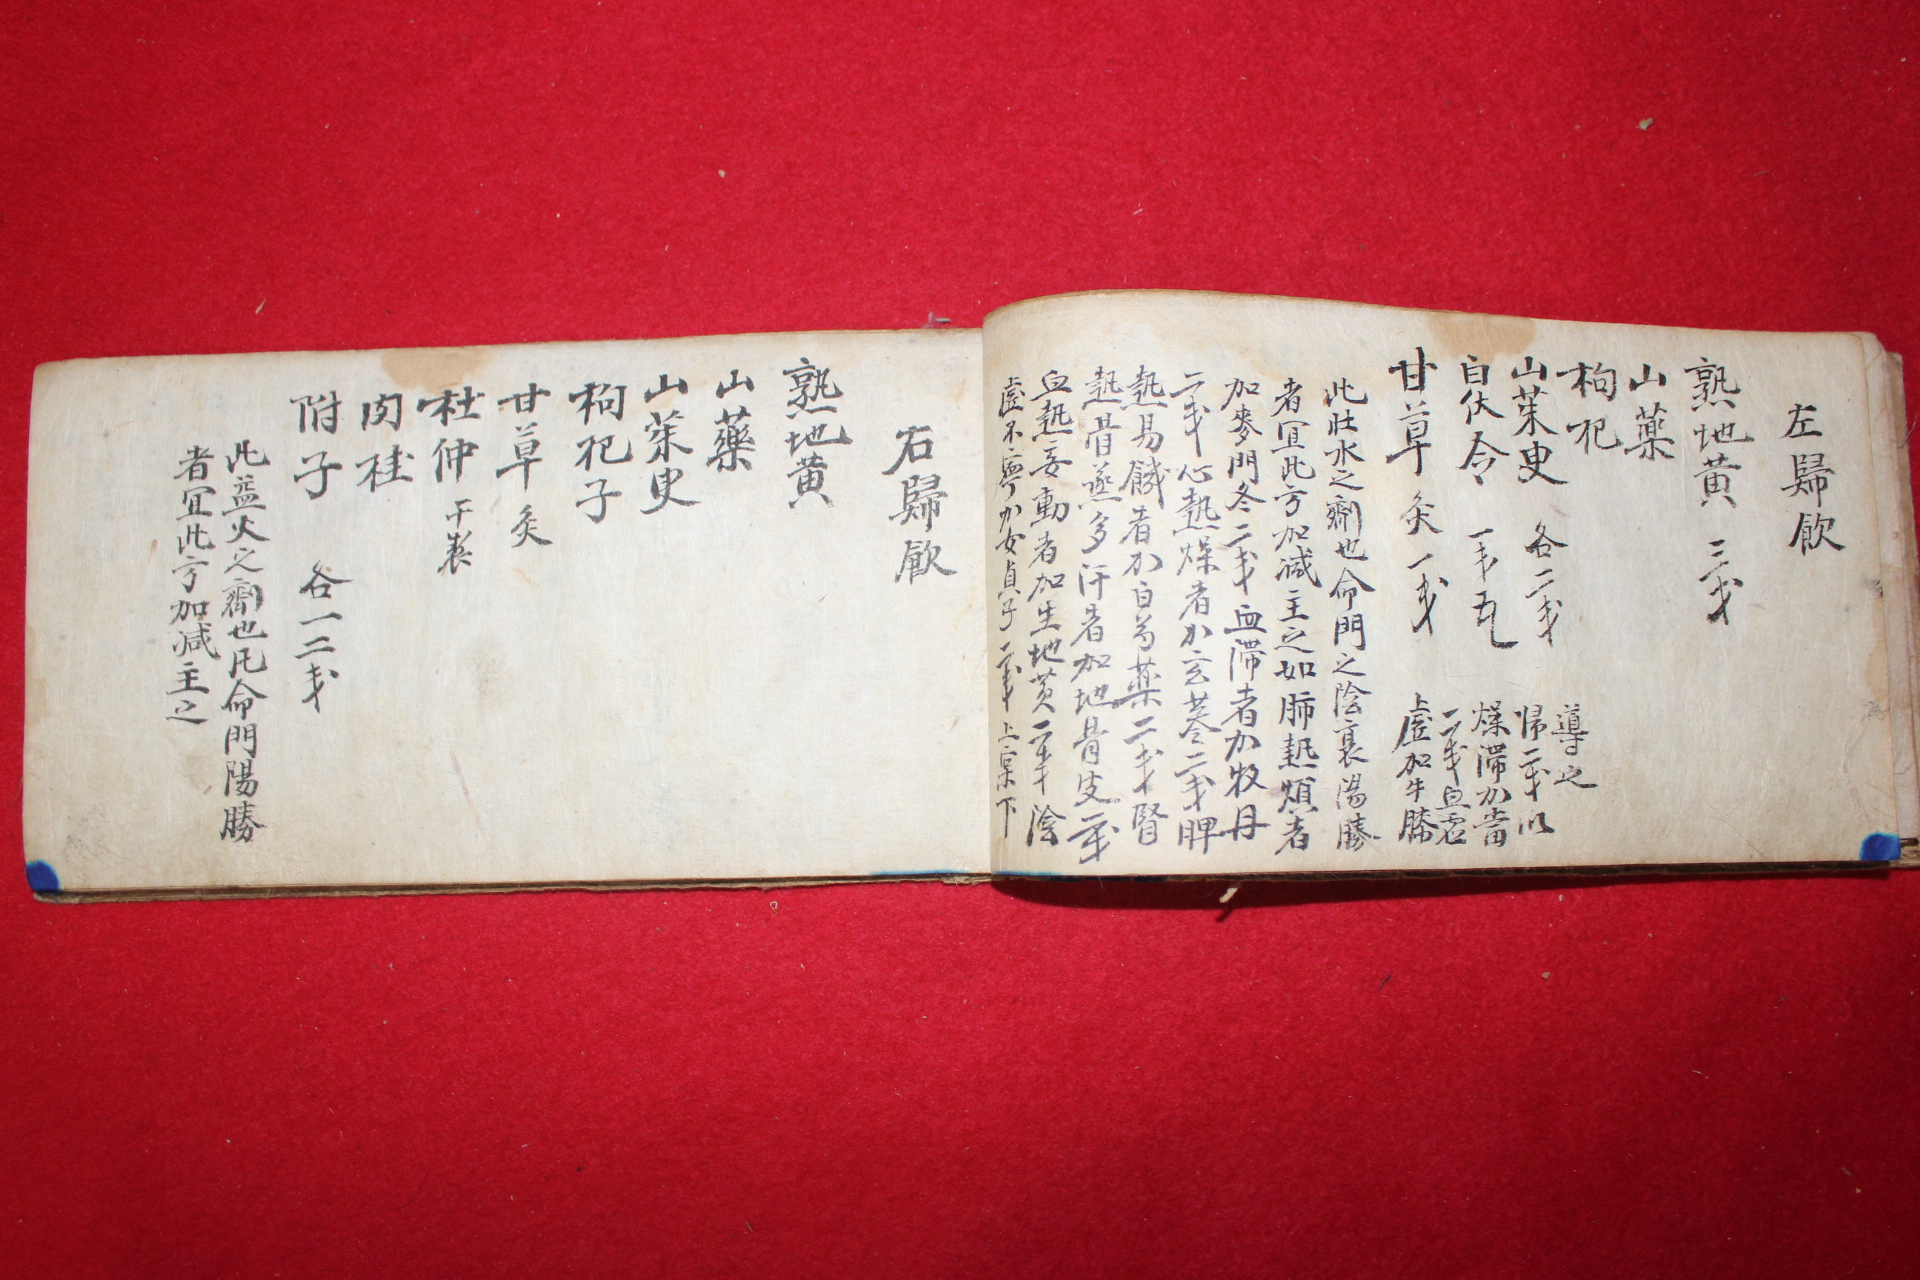 左歸飮
熟地黃 三戔
山藥
枸杞
山茱萸 各二戔
白伏令 一戔五
甘草 灸 一戔
此壯水之劑也命門之陰衰陽勝
者宜此方加减主之如肺熱煩者
加麥門冬二戔血滯者加牧丹
二戔心熱燥者加玄葠二戔脾
熱易饑者加白芍藥二戔腎
熱骨蒸多汗者加地骨皮二戔
血熱妄動者加生地黃二戔陰
虛不寧加女貞子二戔上寀下
上虛加牛膝
二戔血虛
燥滯加當
帰二戔以
導之
右歸飮
熟地黃
山藥
山茱萸
枸杞子
甘草 灸
杜仲 干製
肉桂
附子 各一二戔
此益火之劑也凡命門陽勝
者宜此方加减主之